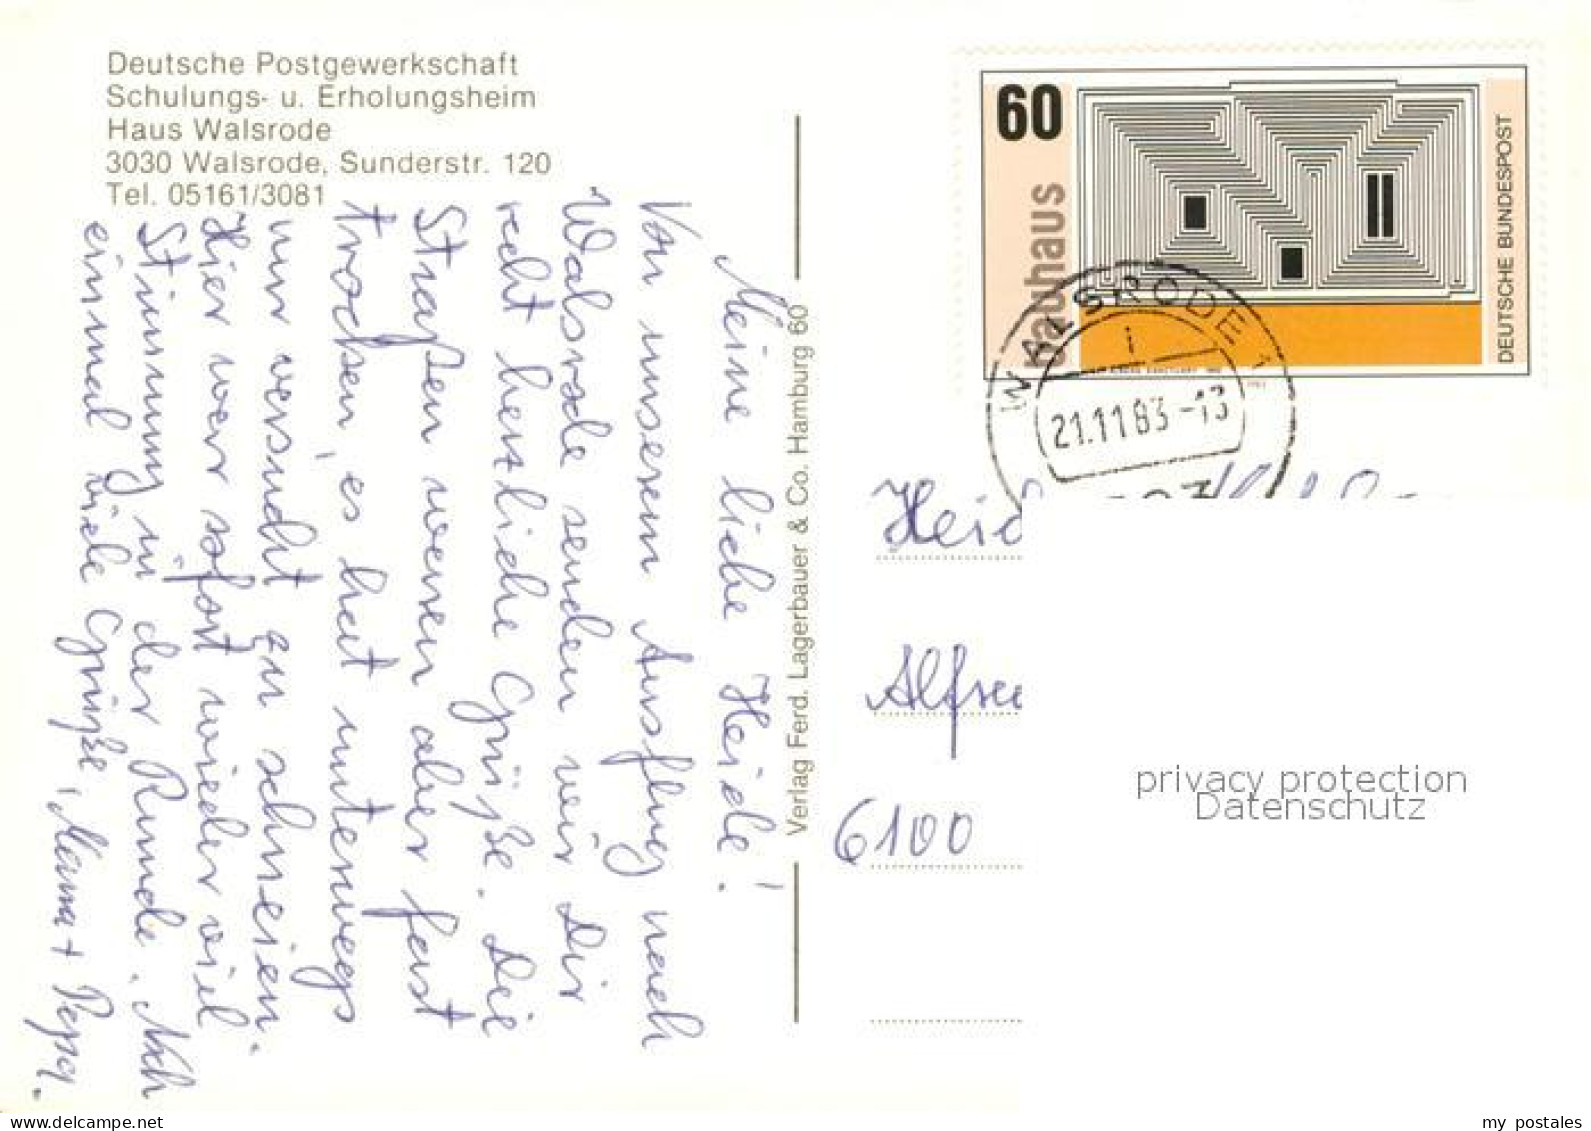 Deutsche Postgewerkschaft
Schulungs- u. Erholungsheim
Haus Walsrode
3030 Walsrode, Sunderstr. 120
Tel. 05161/3081
Meine liebe Heide!
Von unserem Ausflug nach
Walsrode senden wir Dir
recht herzliche Grüße. Die
Straßen waren aber fast
trocken, es hat unterwegs
nur versucht zu schneien.
Hier war sofort wieder viel
Stimmung in der Runde. Noch
einmal viele Grüße, Mama + Papa.
Verlag Ferd. Lagerbauer & Co. Hamburg 60
60
bauhaus
DEUTSCHE BUNDESPOST
WALSRODE 1
21.11.83-13
Heid
Alfre
6100
privacy protection
Datenschutz
my postales